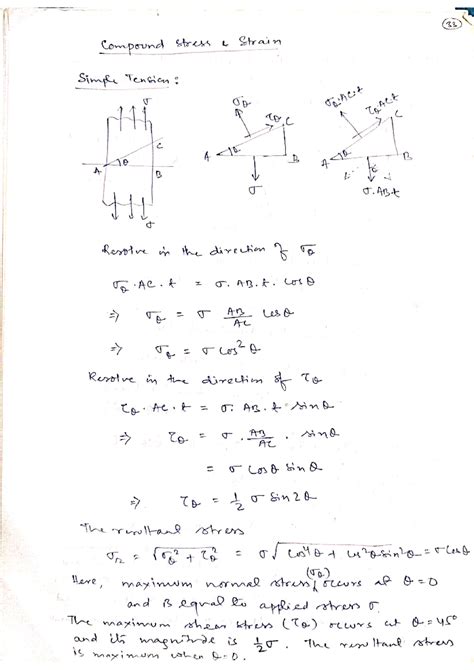 33
Compound stress & Strain
Simple Tension:
σ
A θ B C
σ
σθ τθ C
A θ B
σ
σθ·AC·t τθAC.t
C
A θ B
t
σ.AB.t
Resolve in the direction of σθ
σθ·AC·t = σ. AB.t. cosθ
⇒ σθ = σ AB/AC cosθ
⇒ σθ = σ cos²θ
Resolve in the direction of τθ
τθ. AC.t = σ. AB.t sinθ
⇒ τθ = σ. AB/AC. sinθ
= σ cosθ sinθ
⇒ τθ = 1/2 σ sin2θ
The resultant stress
σr = √(σθ² + τθ²) = σ√(cos⁴θ + cos²θ sin²θ) = σ cosθ
Here, maximum normal stress (σθ) occurs at θ=0
and is equal to applied stress σ.
The maximum shear stress (τθ) occurs at θ=45°
and its magnitude is 1/2σ. The resultant stress
is maximum when θ=0.